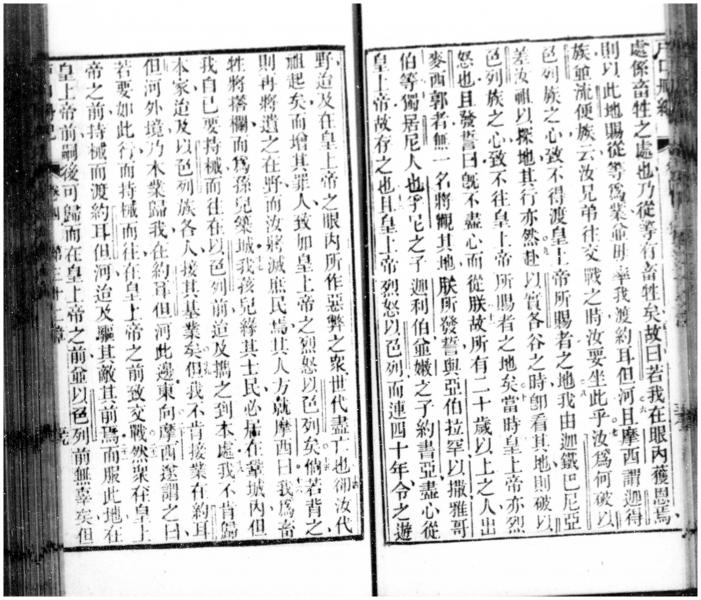 處係畜牲之處也乃從等有畜牲矣故曰若我在眼內獲恩焉
則以此地賜從等為業並毋率我渡約耳但河且摩西謂迦得
族並流便族云汝兄弟往交戰之時汝要坐此乎汝為何破以
色列族之心致不得渡皇上帝所賜者之地我由迦鐵巴尼亞
差汝祖以探地其行亦然赴以實各谷之時卽看其地則破以
色列族之心致不往皇上帝所賜者之地矣當時皇上帝亦烈
怒也且發誓曰既不盡心而從朕故所有二十歲以上之人出
麥西郭者無一名將觀其地朕所發誓與亞伯拉罕以撒雅哥
伯等獨居尼人也乎尼之子迦利伯並嫩之子約書亞盡心從
皇上帝故存之也且皇上帝烈怒以色列而連四十年令之遊
野迨及在皇上帝之眼內所作惡弊之衆世代盡亡也卻汝代
祖起矣而增其罪人致如皇上帝之烈怒以色列矣倘若背之
則再將遺之在野而汝將滅庶民焉其人方就摩西曰我為畜
牲將搭欄而為孫兒築城我孩兒緣其士民必居在葦城內但
我自己要持械而往在以色列前迨及攜之到本處我不肯歸
本家迨及以色列族各人接其基業矣但我不肯接業在約耳
但河外境乃本業歸我在約耳但河此邊東向摩西遂謂之曰
若要如此行而持械而往在皇上帝之前致交戰然衆在皇上
帝之前持械而渡約耳但河迨及驅其敵其前焉而服此地在
皇上帝前嗣後可歸而在皇上帝之前並以色列前無辜矣但